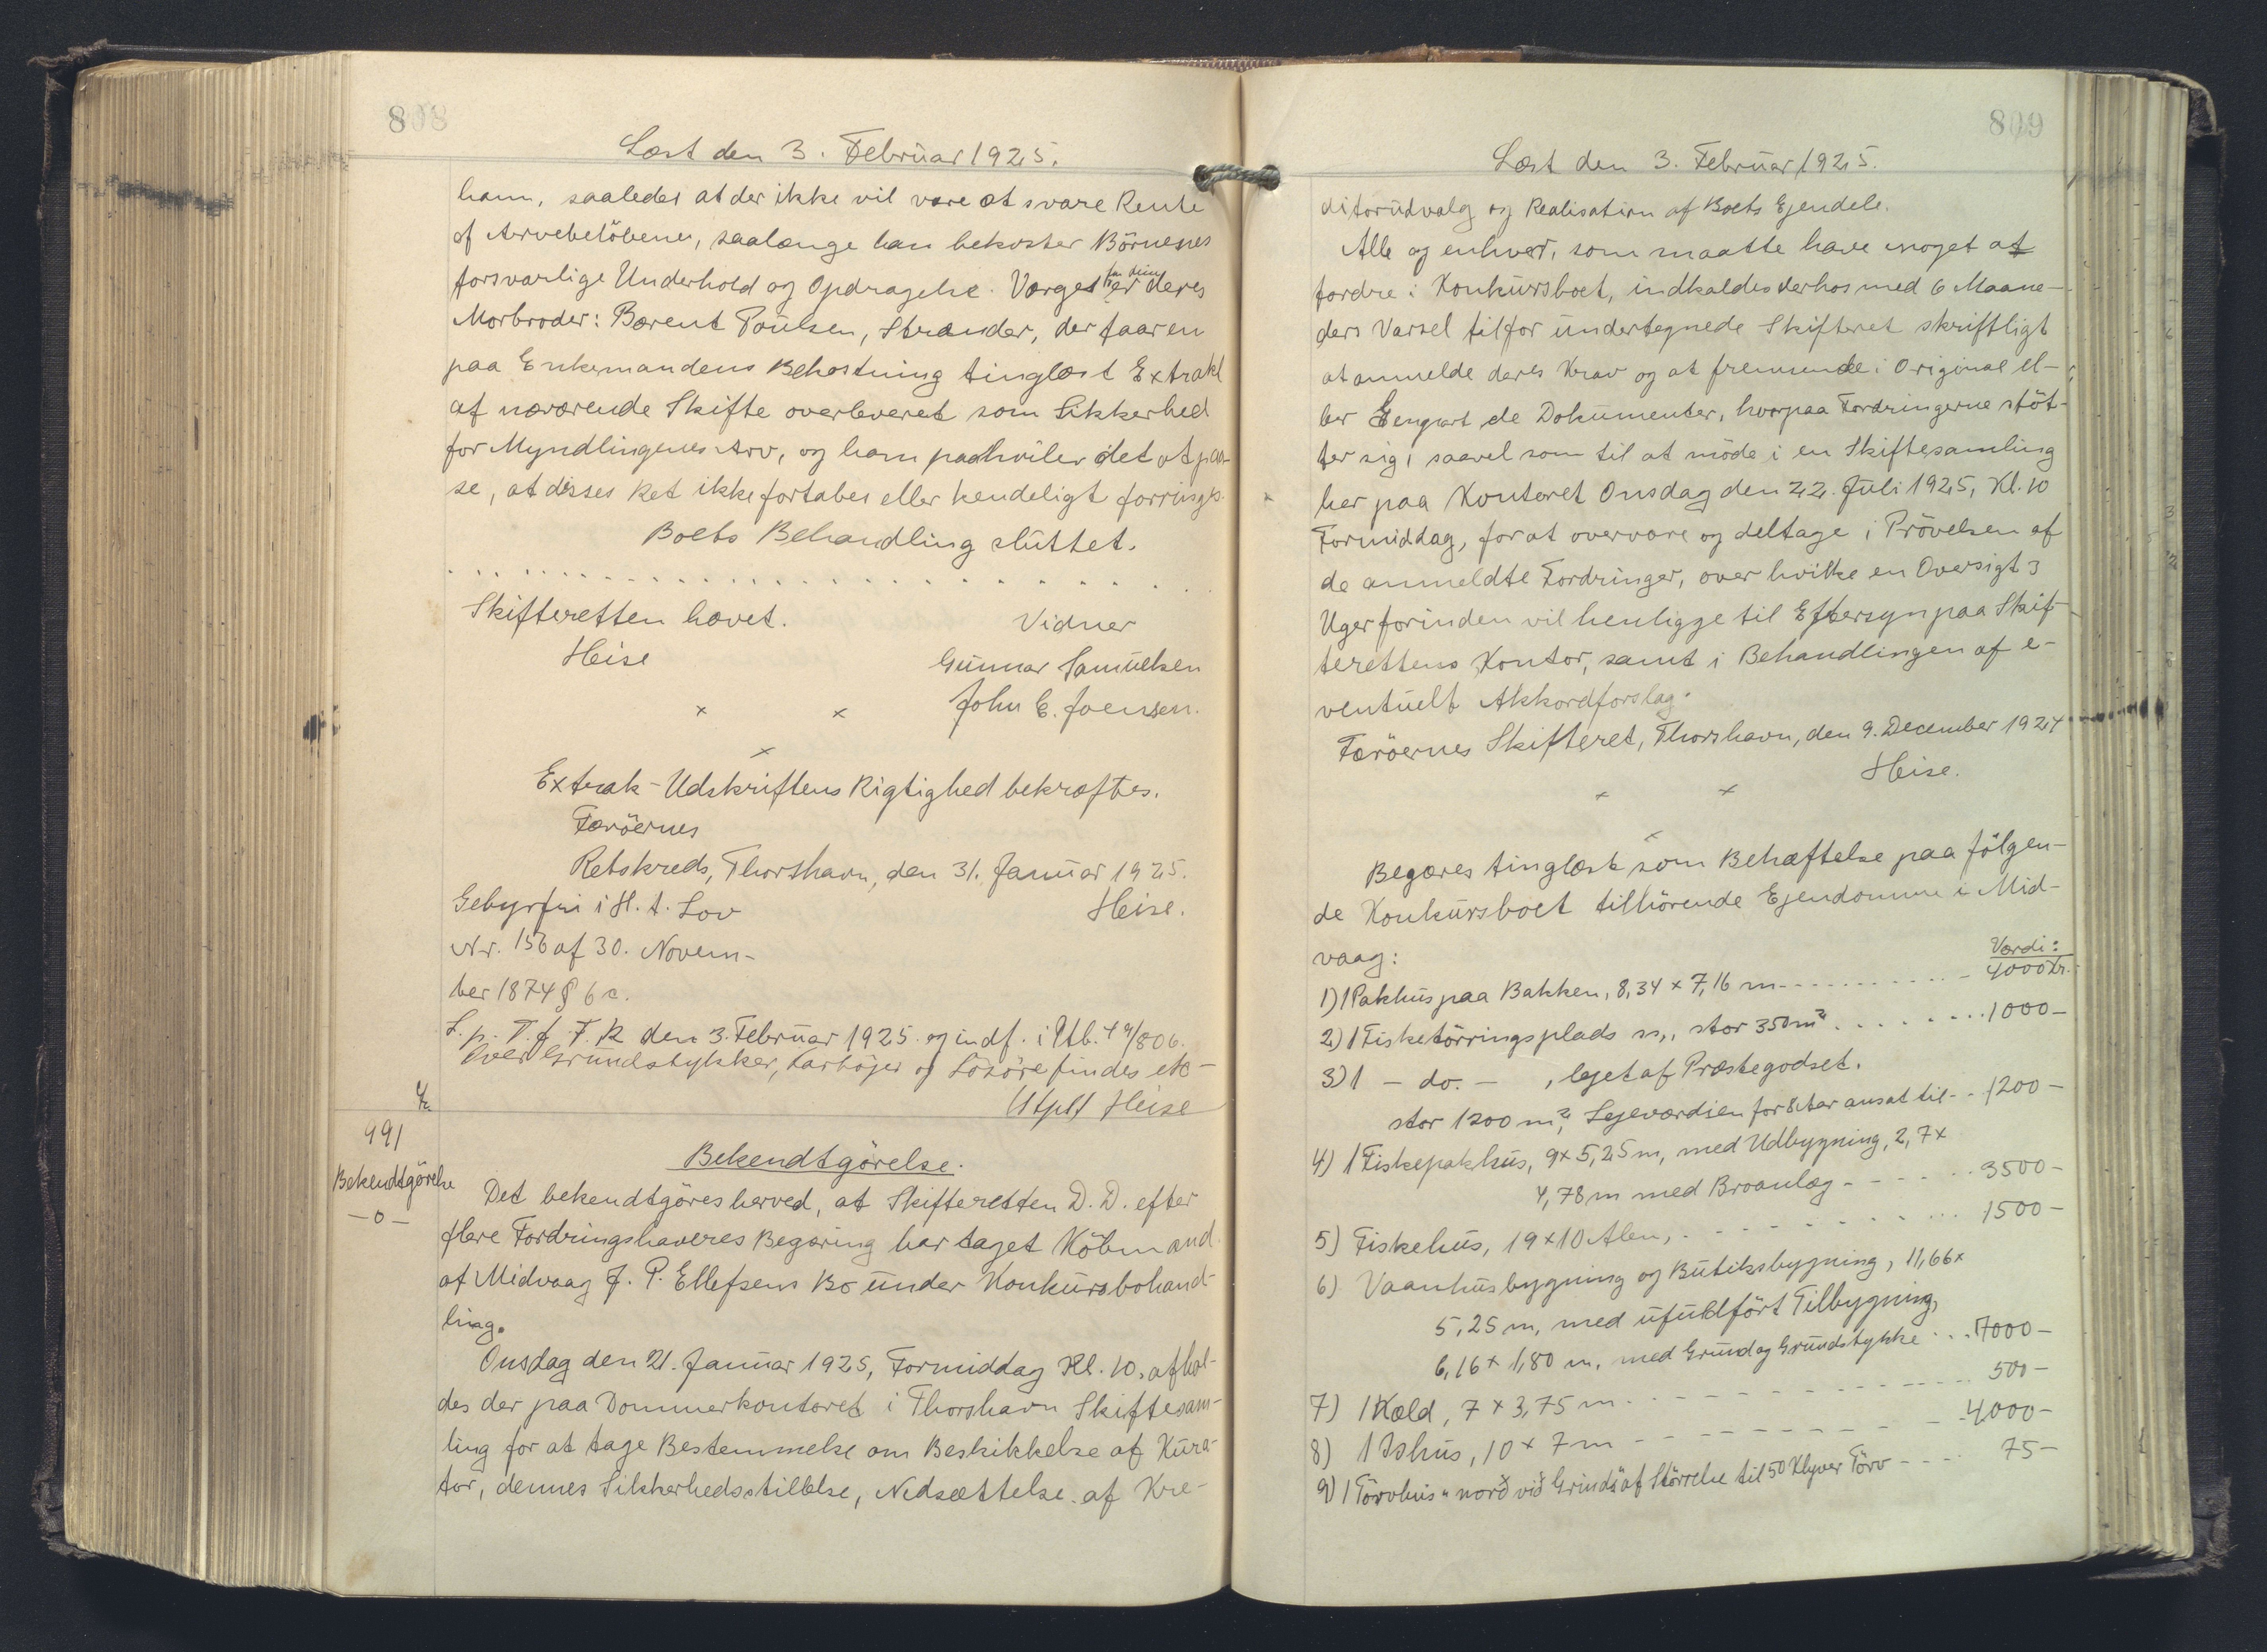 808
Læst den 3. Februar 1925.
ham, saaledes at der ikke vil være at svare Rente
af Arvebelöbene, saalænge han bekoster Börnenes
forsvarlige Underhold og Opdragelse. Værges er deres
Morbroder: Bærent Poulsen, Strænder, der faar en
paa Enkemandens Bekostning tinglæst Extrakt
af nærværende Skifte overleveret som Sikkerhed
for Myndlingenes Arv, og ham paahviler det at paa-
se, at disses Ret ikke fortabes eller kendeligt forringes.
Boets Behandling sluttet.
Skifteretten hævet.
Vidner
Heise
Gunnar Samuelsen
John E. Joensen.
Extrak-Udskriftens Rigtighed bekræftes.
Færöernes
Retskreds, Thorshavn, den 31. Januar 1925.
Gebyrfri i H. t. Lov
Heise.
Nr. 156 af 30. Novem-
ber 1874 § 6 c.
L. p. T. f. F. R den 3. Februar 1925 og indf. i Ptb. 49/806.
Over Grundstykker, Larhöjer og Lösöre findes etc-
Utplt Heise
991
Bekendtgörelse
-o-
Bekendtgörelse.
Det bekendtgöres herved, at Skifteretten D. D. efter
flere Fordringshaveres Begæring har taget Köbmand
af Midvaag J. P. Ellefsens Bo under Konkursbohand-
ling.
Onsdag den 21. Januar 1925, Formiddag Kl. 10, afhol-
des der paa Dommerkontoret i Thorshavn Skiftesam-
ling for at tage Bestemmelse om Beskikkelse af Kura-
tor, dennes Sikkerhedsstillelse, Nedsættelse af Kre-
809
Læst den 3. Februar 1925.
ditorudvalg og Realisation af Boets Ejendele.
Alle og enhver, som maatte have noget at
fordre i Konkursboet, indkaldes derhos med 6 Maane-
ders Varsel til for undertegnede Skifteret skriftligt
at anmelde deres Krav og at fremsende i Original el-
ler Genpart de Dokumenter, hvorpaa Fordringerne stöt-
ter sig, saavel som til at möde i en Skiftesamling
her paa Kontoret Onsdag den 22. Juli 1925, Kl. 10
Formiddag, for at overvære og deltage i Prövelsen af
de anmeldte Fordringer, over hvilke en Oversigt 3
Uger forinden vil henligge til Eftersyn paa Skif-
terettens Kontor, samt i Behandlingen af e-
ventuelt Akkordforslag.
Færöernes Skifteret, Thorshavn, den 9. December 1924
Heise.
Begæres tinglæst som Behæftelse paa fölgen-
de Konkursboet tilhörende Ejendomme i Mid-
vaag:
Værdi:
1) 1 Pakhus paa Bakken, 8,34 x 7,16 m - - - 4000 Kr.
2) 1 Fisketörringsplads ss., stor 350 m² . . . . 1000-
3) 1 - do. - , lejet af Præstegodset.
stor 1200 m², Lejeværdien for 8 Aar ansat til - - 1200-
4) 1 Fiskepakhus, 9 x 5,25 m, med Udbygning, 2,7 x
4,78 m med Broanlæg - - - - 3500-
5) Fiskehus, 19 x 10 Alen, . - - - 1500-
6) Vaanhusbygning og Butiksbygning, 11,66 x
5,25 m, med ufuldfört Tilbygning,
6,16 x 1,80 m, med Grund og Grundstykke . . . 7000-
7) 1 Kæld, 7 x 3,75 m . - - - 500-
8) 1 Ishus, 10 x 7 m - - - - 4000-
9) 1 Törvhus "norð við Grind" af Störrelse til 50 Klyver Törv - - - - 75-